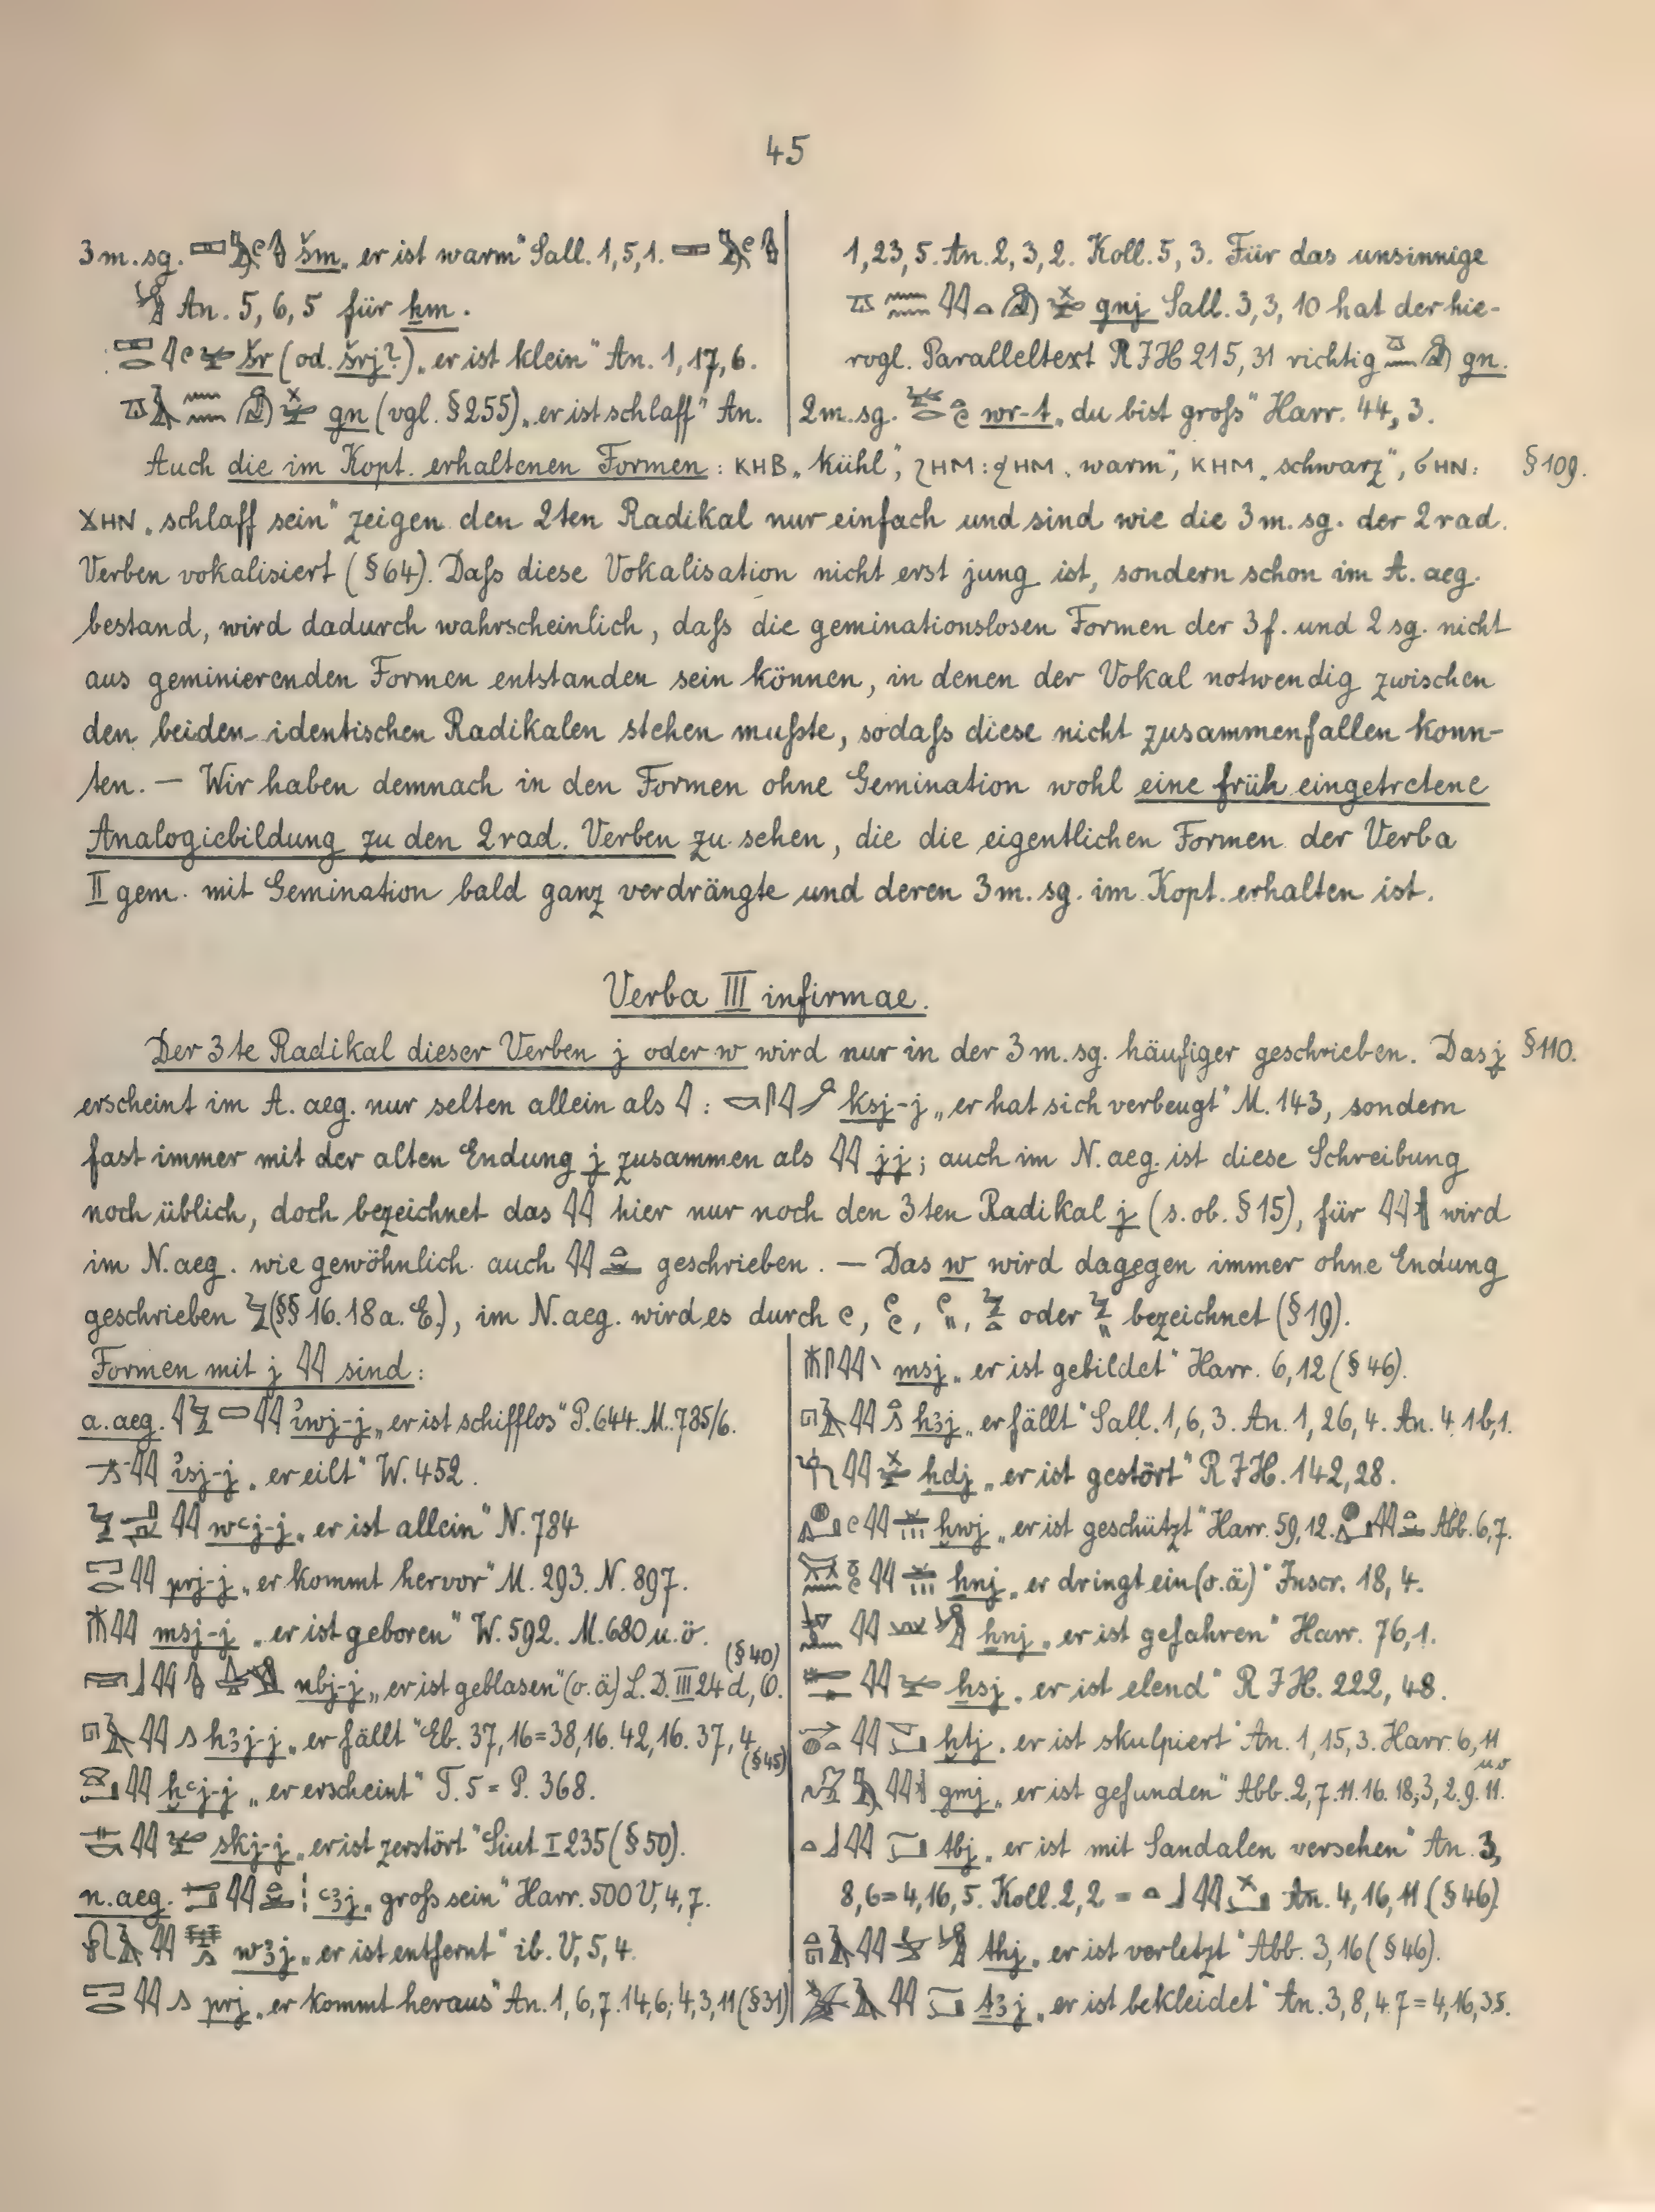 45
3 m. sg. šm „er ist warm“ Sall. 1, 5, 1.
An. 5, 6, 5 für ḫm.
šr (od. šrj?) „er ist klein“ An. 1, 17, 6.
gn (vgl. § 255) „er ist schlaff“ An.
1, 23, 5. An. 2, 3, 2. Koll. 5, 3. Für das unsinnige
gnj Sall. 3, 3, 10 hat der hie-
rogl. Paralleltext RJH 215, 31 richtig gn.
2 m. sg. wr-t „du bist groſs“ Harr. 44, 3.
Auch die im Kopt. erhaltenen Formen: ⲕⲏⲃ „kühl“, ϩⲏⲙ: ϧⲏⲙ „warm“, ⲕⲏⲙ „schwarz“, ϭⲏⲛ: § 109.
ϫⲏⲛ „schlaff sein“ zeigen den 2ten Radikal nur einfach und sind wie die 3 m. sg. der 2 rad.
Verben vokalisiert (§ 64). Daſs diese Vokalisation nicht erst jung ist, sondern schon im A. aeg.
bestand, wird dadurch wahrscheinlich, daſs die geminationslosen Formen der 3 f. und 2 sg. nicht
aus geminierenden Formen entstanden sein können, in denen der Vokal notwendig zwischen
den beiden identischen Radikalen stehen muſste, sodaſs diese nicht zusammenfallen konn-
ten. — Wir haben demnach in den Formen ohne Gemination wohl eine früh eingetretene
Analogiebildung zu den 2 rad. Verben zu sehen, die die eigentlichen Formen der Verba
II gem. mit Gemination bald ganz verdrängte und deren 3 m. sg. im Kopt. erhalten ist.
Verba III infirmae.
Der 3te Radikal dieser Verben j oder w wird nur in der 3 m. sg. häufiger geschrieben. Das j § 110.
erscheint im A. aeg. nur selten allein als 𓇋: ksj-j „er hat sich verbeugt“ M. 143, sondern
fast immer mit der alten Endung j zusammen als 𓇋𓇋 jj; auch im N. aeg. ist diese Schreibung
noch üblich, doch bezeichnet das 𓇋𓇋 hier nur noch den 3ten Radikal j (s. ob. § 15), für 𓇋𓇋 wird
im N. aeg. wie gewöhnlich auch 𓇋𓇋 geschrieben. — Das w wird dagegen immer ohne Endung
geschrieben 𓅱 (§§ 16. 18 a. E.), im N. aeg. wird es durch 𓏲, oder bezeichnet (§ 19).
Formen mit j 𓇋𓇋 sind:
a. aeg. ꞽwj-j „er ist schifflos“ P. 644. M. 785/6.
ꞽsj-j „er eilt“ W. 452.
wꜥj-j „er ist allein“ N. 784
prj-j „er kommt hervor“ M. 293. N. 897.
msj-j „er ist geboren“ W. 592. M. 680 u. ö.
nbj-j „er ist geblasen“ (o. ä) L. D. III 24 d, O. (§ 40)
hꜣj-j „er fällt“ Eb. 37, 16 = 38, 16. 42, 16. 37, 4 (§ 45)
ḫꜥj-j „er erscheint“ T. 5 = P. 368.
skj-j „er ist zerstört“ Siut I 235 (§ 50).
n. aeg. ꜥꜣj „groſs sein“ Harr. 500 V, 4, 7.
wꜣj „er ist entfernt“ ib. V, 5, 4.
prj „er kommt heraus“ An. 1, 6, 7. 14, 6; 4, 3, 11 (§ 31)
msj „er ist gebildet“ Harr. 6, 12 (§ 46).
hꜣj „er fällt“ Sall. 1, 6, 3. An. 1, 26, 4. An. 4 1b, 1.
ḥdj „er ist gestört“ RJH. 142, 28.
ḫwj „er ist geschützt“ Harr. 59, 12. Abb. 6, 7.
ẖnj „er dringt ein (o. ä)“ Inscr. 18, 4.
ẖnj „er ist gefahren“ Harr. 76, 1.
ẖsj „er ist elend“ RJH. 222, 48.
ḫtj „er ist skulpiert“ An. 1, 15, 3. Harr. 6, 11
gmj „er ist gefunden“ Abb. 2, 7. 11. 16. 18; 3, 2. 9. 11. uö
tbj „er ist mit Sandalen versehen“ An. 3,
8, 6 = 4, 16, 5. Koll. 2, 2 = An. 4, 16, 11 (§ 46).
thj „er ist verletzt“ Abb. 3, 16 (§ 46).
tꜣj „er ist bekleidet“ An. 3, 8, 4. 7 = 4, 16, 3.5.